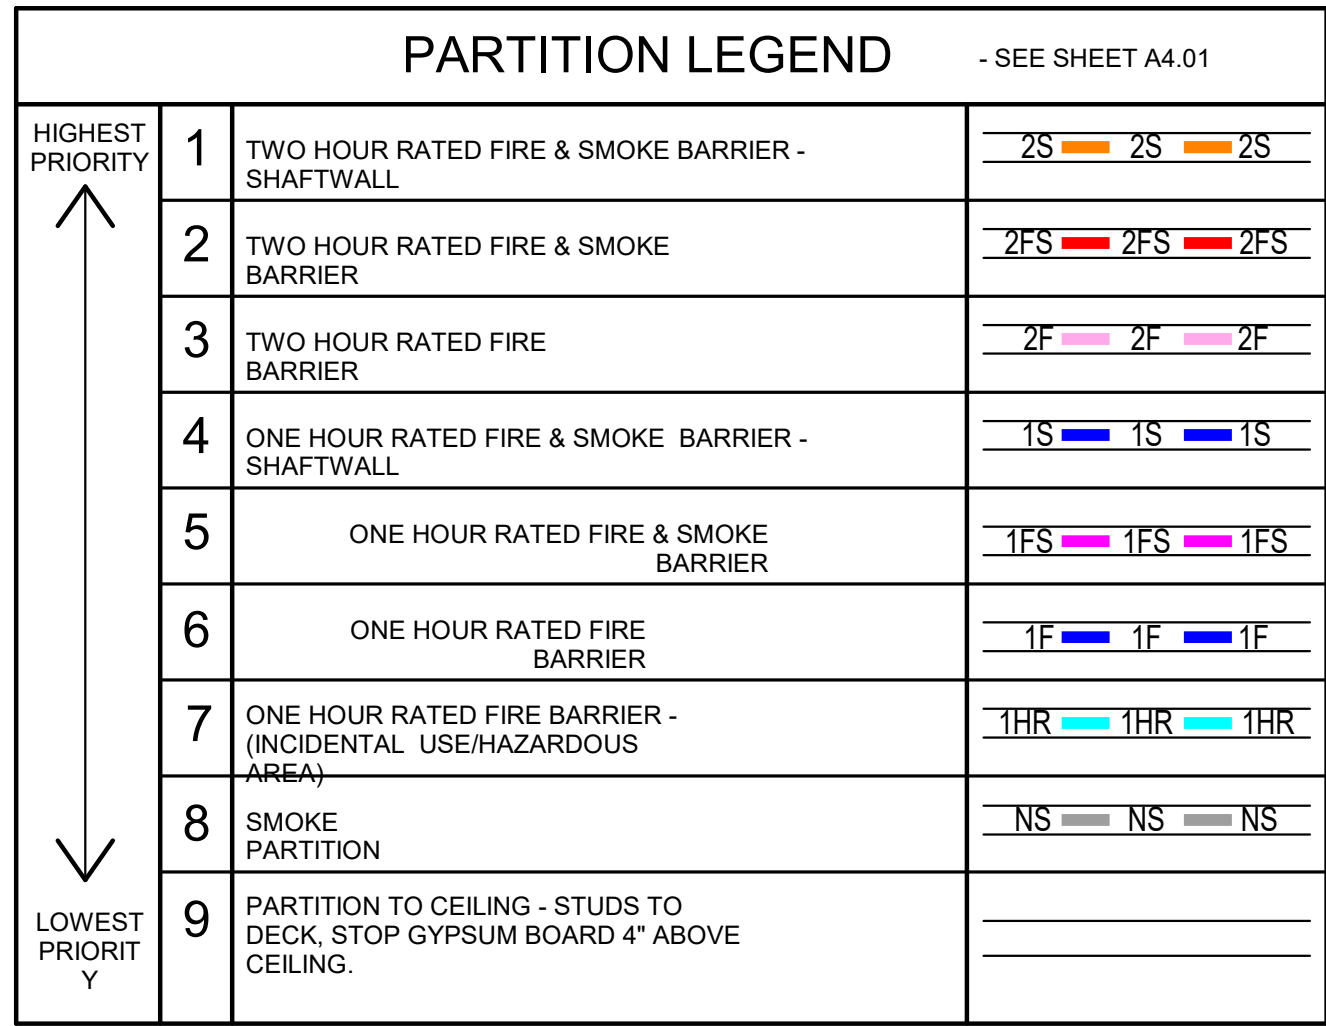 PARTITION LEGEND - SEE SHEET A4.01
HIGHEST
PRIORITY
1
TWO HOUR RATED FIRE & SMOKE BARRIER -
SHAFTWALL
2S 2S 2S
2
TWO HOUR RATED FIRE & SMOKE
BARRIER
2FS 2FS 2FS
3
TWO HOUR RATED FIRE
BARRIER
2F 2F 2F
4
ONE HOUR RATED FIRE & SMOKE BARRIER -
SHAFTWALL
1S 1S 1S
5
ONE HOUR RATED FIRE & SMOKE
BARRIER
1FS 1FS 1FS
6
ONE HOUR RATED FIRE
BARRIER
1F 1F 1F
7
ONE HOUR RATED FIRE BARRIER -
(INCIDENTAL USE/HAZARDOUS
AREA)
1HR 1HR 1HR
8
SMOKE
PARTITION
NS NS NS
LOWEST
PRIORIT
Y
9
PARTITION TO CEILING - STUDS TO
DECK, STOP GYPSUM BOARD 4" ABOVE
CEILING.